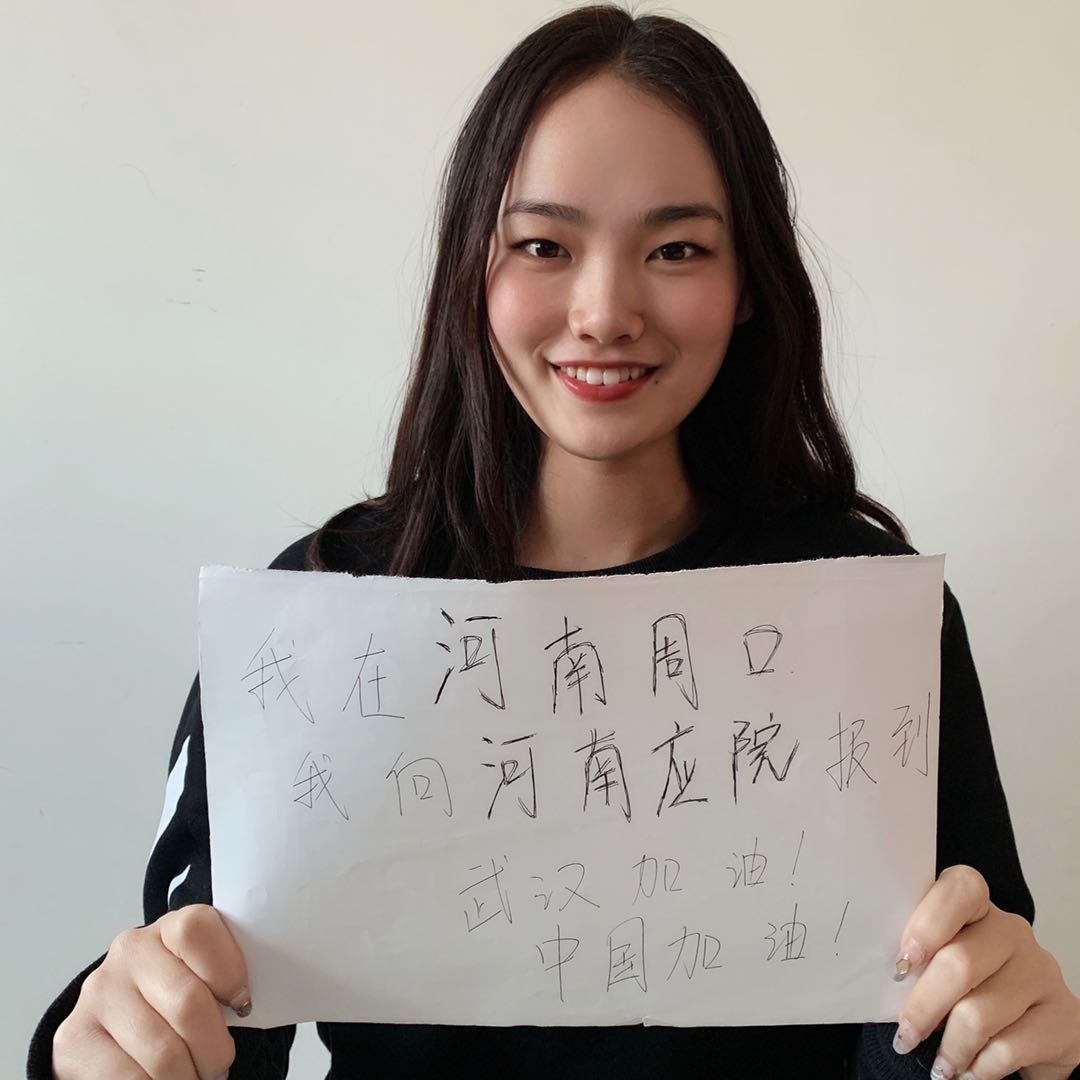 我在河南周口
我向河南应院报到
武汉加油！
中国加油！